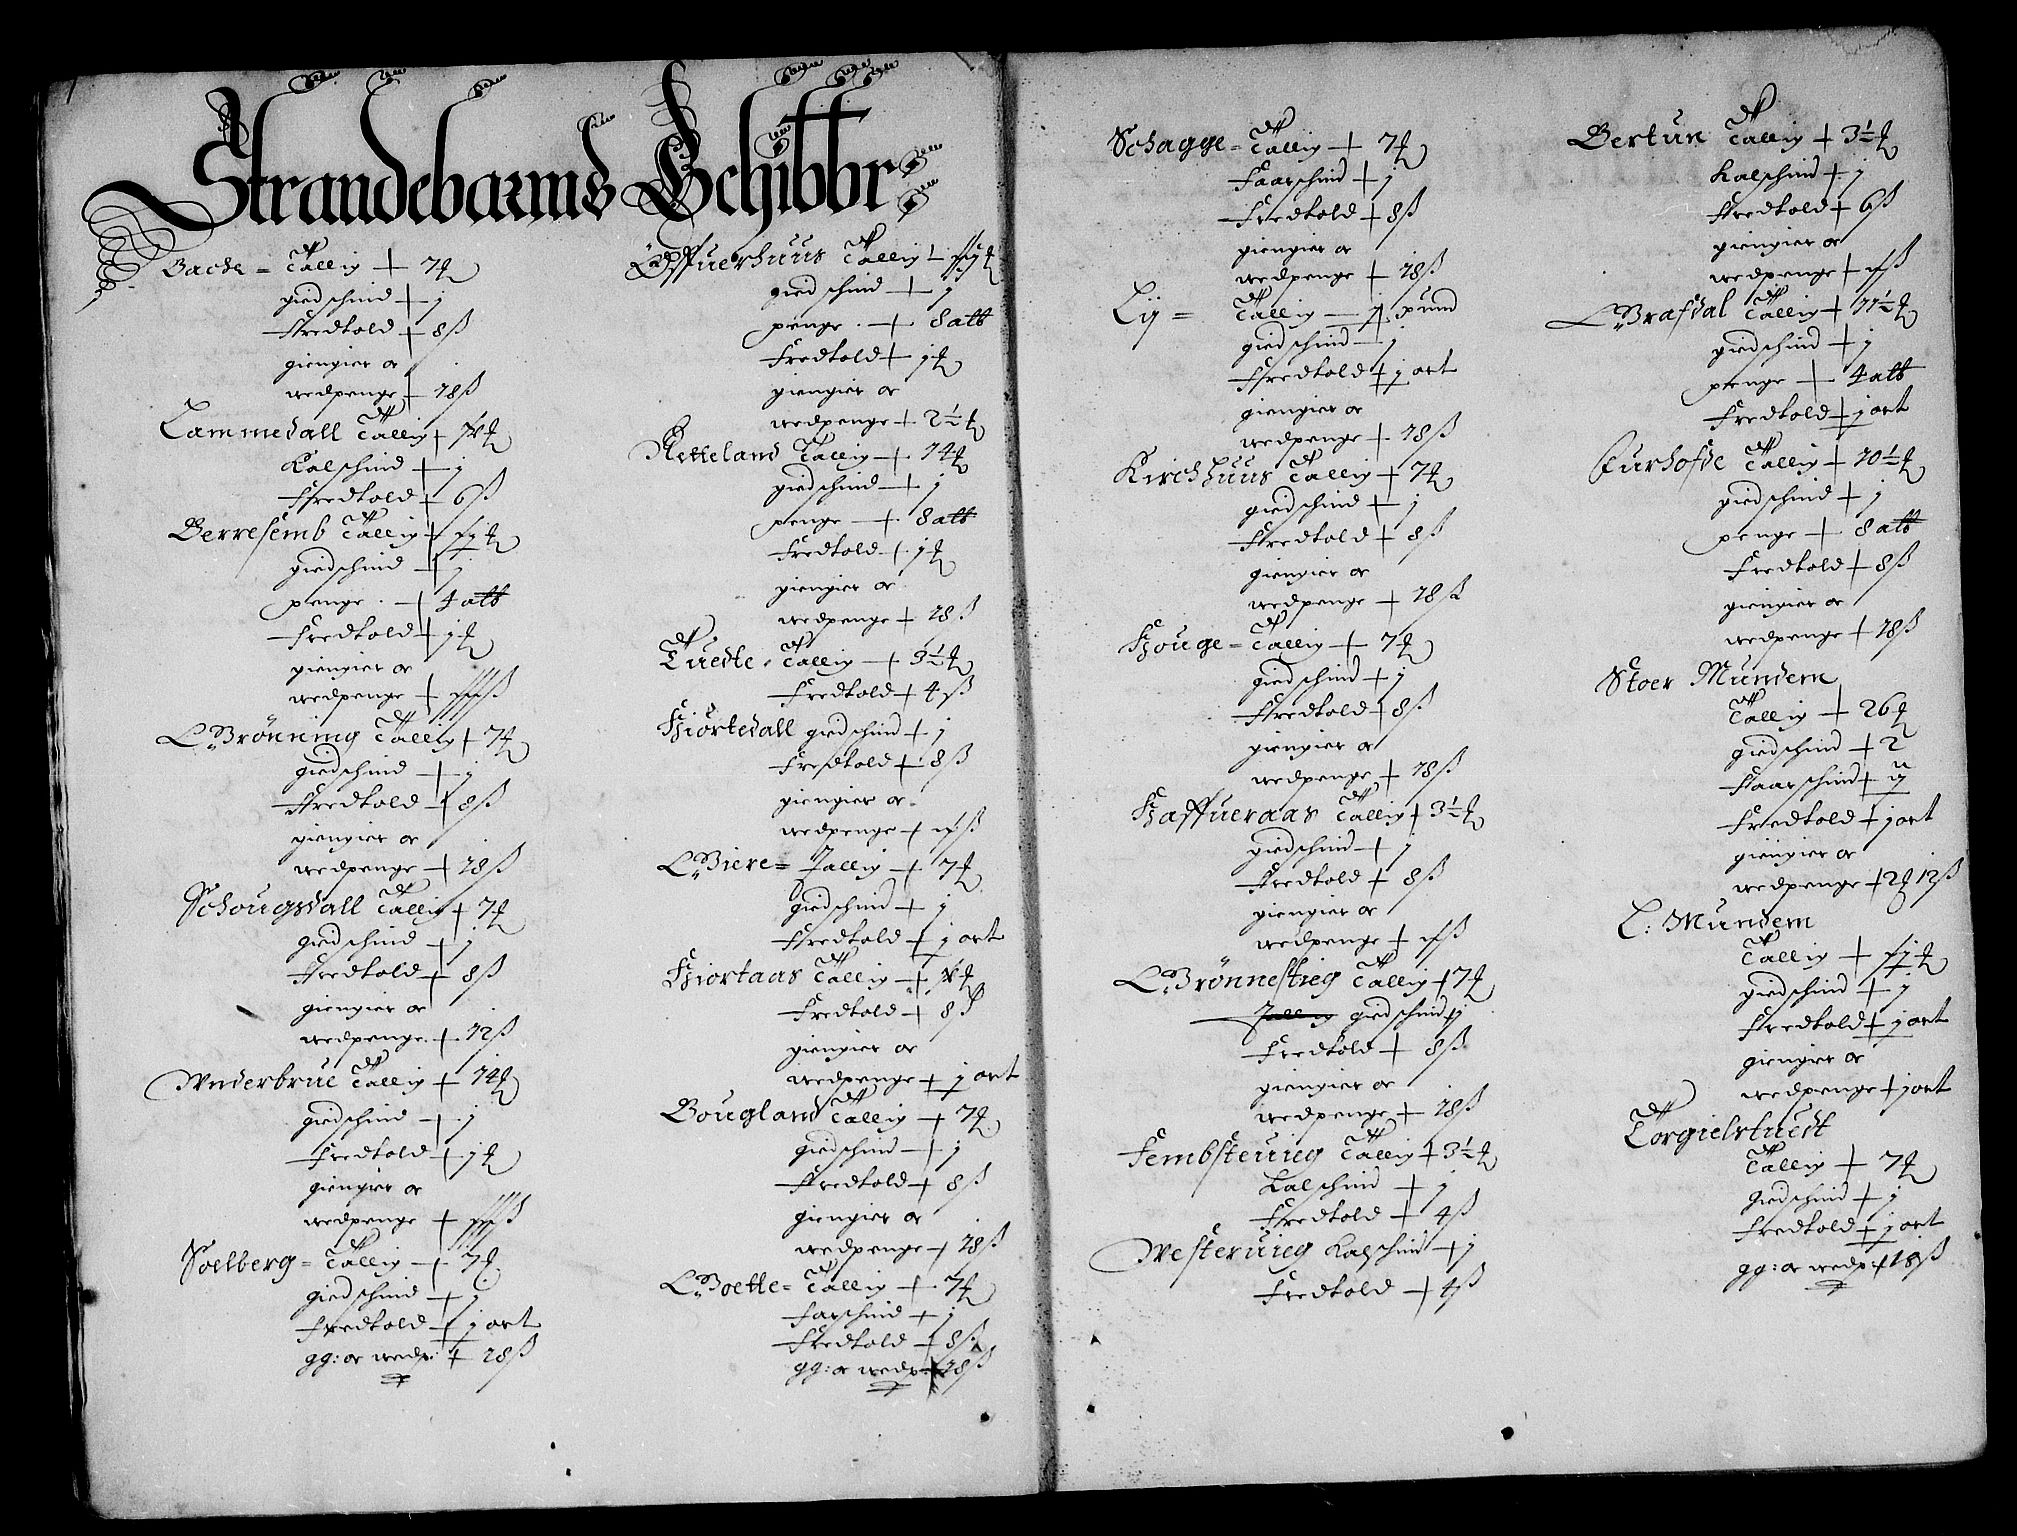 Strandebarms Schibbr
Backe = Tallig + 7
giedschind + j
Fredtold + 8 ß
giengier or
wedpenge + 18 ß
Lammedall Tallig +
Kalschind + j
Fredtold + 6 ß
Berresemb Tallig +
giedschind + j
penge + 4 alb
Fredtold + j
giengier or
wedpenge +
Brönning Tallig + 7
giedschind + j
Fredtold + 8 ß
giengier or
wedpenge + 18 ß
Schougsdall Tallig + 7
giedschind + j
Fredtold + 8 ß
giengier or
wedpenge + 12 ß
Wnderbrue Tallig + 14
giedschind + j
Fredtold + j
giengier or
wedpenge +
Soelberg = Tallig + 7
giedschind + j
Fredtold + j ort
gg: or wedp: + 18 ß
Öffuerhuus Tallig +
giedschind + j
penge + 8 alb
Fredtold + j
giengier or
wedpenge + 2½
Netteland Tallig + 14
giedschind + j
penge + 8 alb
Fredtold + j
giengier or
wedpenge + 18 ß
Tuedte = Tallig + 3½
Fredtold + 4 ß
Hiortedall giedschind + j
Fredtold + 8 ß
giengier or
wedpenge +
Biere = Tallig + 7
giedschind + j
Fredtold + j ort
Hiortaas Tallig +
Fredtold + 8 ß
giengier or
wedpenge + j ort
Bougland Tallig + 7
giedschind + j
Fredtold + 8 ß
giengier or
wedpenge + 18 ß
Boette = Tallig + 7
Farschind + j
Fredtold + 8 ß
gg: or wedp: + 18 ß
Schagge = Tallig + 7
Faarschind + j
Fredtold + 8 ß
giengier or
wedpenge + 18 ß
Lij = Tallig — j pund
giedschind — j
Fredtold + j ort
giengier or
wedpenge + 18 ß
Kirchhuus Tallig + 7
giedschind + j
Fredtold + 8 ß
giengier or
wedpenge + 18 ß
Houge = Tallig + 7
giedschind + j
Fredtold + 8 ß
giengier or
wedpenge + 18 ß
Haffueraas Tallig + 3½
giedschind + j
Fredtold + 8 ß
giengier or
wedpenge +
Brönnestieg Tallig + 7
Tallig giedschind + j
Fredtold + 8 ß
giengier or
wedpenge + 18 ß
Fembsteuieg Tallig + 3½
Kalschind + j
Fredtold + 4 ß
Westeruieg Kalschind + j
Fredtold + 4 ß
Bertun Tallig + 3½
Kalschind + j
Fredtold + 6 ß
giengier or
wedpenge +
Brafdal Tallig + 11½
giedschind + j
penge + 4 alb
Fredtold + j ort
Furhofde Tallig + 10½
giedschind + j
penge + 8 alb
Fredtold + 8 ß
giengier or
wedpenge + 18 ß
Stoer Mundem
Tallig + 26
giedschind + 2
Faarschind + ij
Fredtold + j ort
giengier or
wedpenge + 2 12 ß
L: Mundem
Tallig +
giedschind + j
Fredtold + j ort
giengier or
wedpenge + j ort
Torgielstuedt
Tallig + 7
giedschind + j
Fredtold + j ort
gg: or wedp: + 18 ß